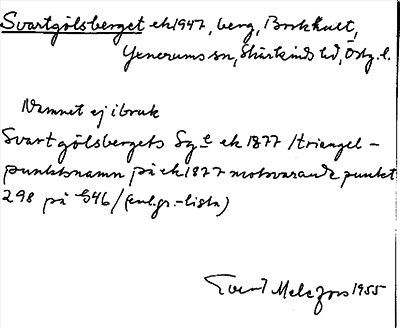 Svartgölsberget ek 1947, berg, Borkhult,
Yxnerums sn, Skärkinds hd, Östg. l.
Namnet ej i bruk
Svartgölsbergets Sge ek 1877 /triangel-
punktsnamn på ek 1877 motsvarande punkt
298 på G46/ (enl. gr.-lista)
Evert Melefors 1955